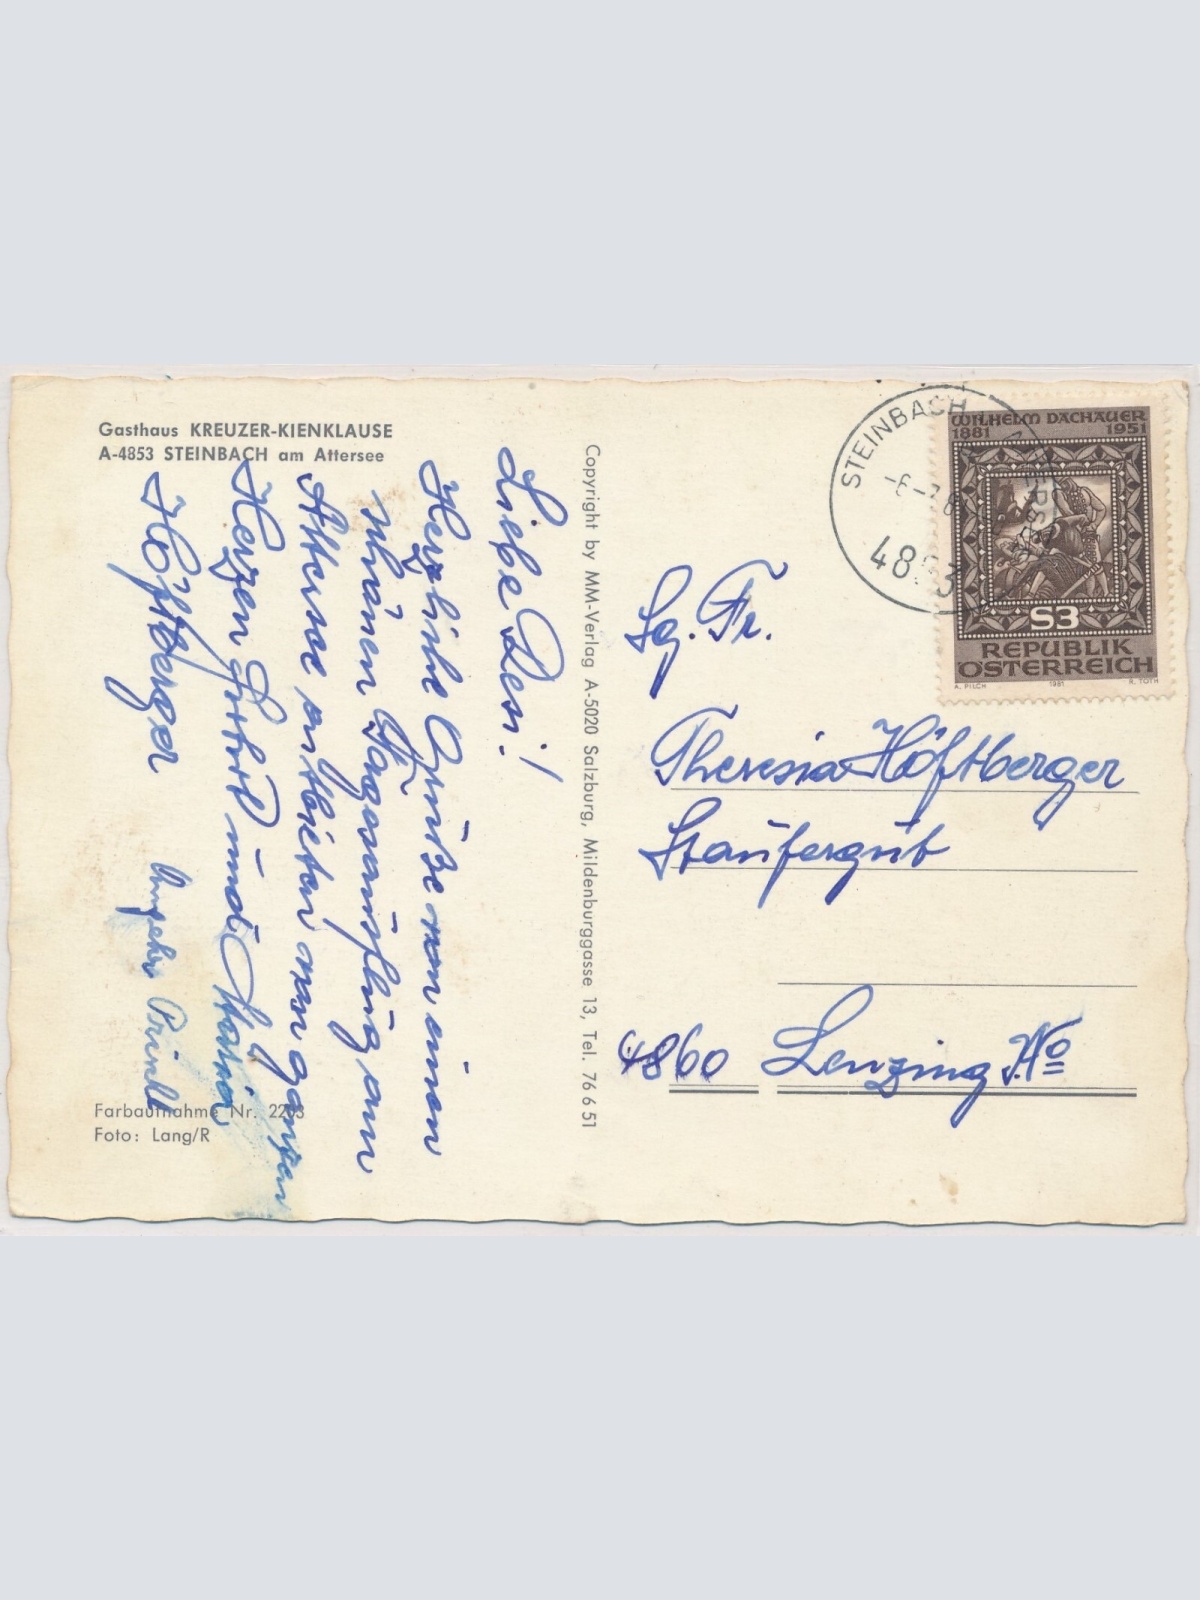 Gasthaus KREUZER-KIENKLAUSE
A-4853 STEINBACH am Attersee
Liebe Resi!
Herzliche Grüße von einen
schönen Tagesausflug am
Attersee entbieten von ganzen
Herzen Gottfr und Maria
Höftberger
Prinll
Farbaufnahme Nr. 2203
Foto: Lang/R
Copyright by MM-Verlag A-5020 Salzburg, Mildenburggasse 13, Tel. 76 6 51
STEINBACH
4853
WILHELM DACHAUER
1881 1951
S3
REPUBLIK
ÖSTERREICH
A. PILCH 1981 R. TOTH
Sg. Fr.
Theresia Höftberger
Staufergut
4860 Lenzing OÖ